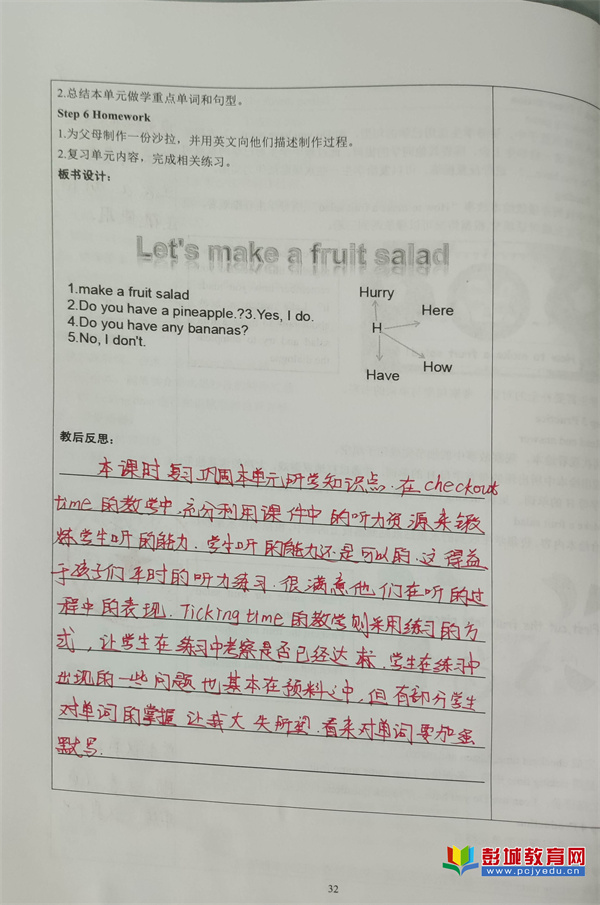 2.总结本单元做学重点单词和句型。
Step 6 Homework
1.为父母制作一份沙拉，并用英文向他们描述制作过程。
2.复习单元内容，完成相关练习。
板书设计：
Let's make a fruit salad
1.make a fruit salad
2.Do you have a pineapple.?3.Yes, I do.
4.Do you have any bananas?
5.No, I don't.
Hurry
Here
H
How
Have
教后反思：
本课时复习巩固本单元所学知识点.在checkout
time的教学中,充分利用课件中的听力资源来锻
炼学生听的能力.学生听的能力还是可以的.这得益
于孩子们平时的听力练习.很满意他们在听的过
程中的表现.Ticking time的教学则采用练习的方
式，让学生在练习中考察是否已经达标,学生在练习中
出现的一些问题也基本在预料之中,但有部分学生
对单词的掌握让我大失所望.看来对单词要加强
默写.
彭城教育网
www.pcjyedu.cn
32